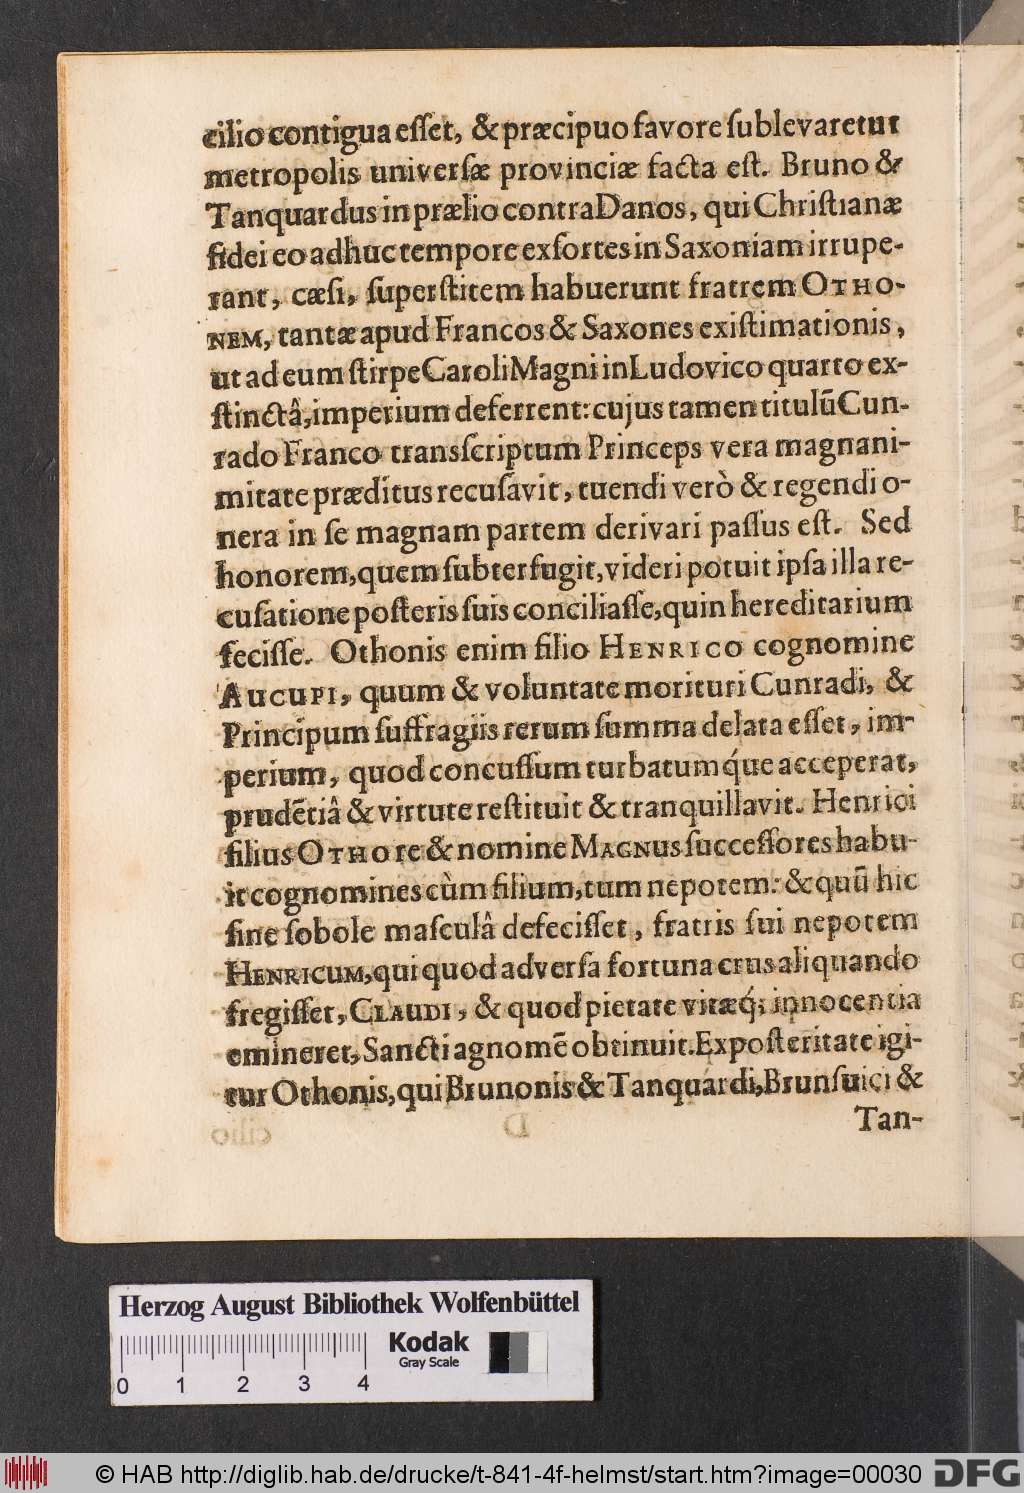 cilio contigua esset, & præcipuo favore sublevaretur
metropolis universæ provinciæ facta est. Bruno &
Tanquardus in prælio contra Danos, qui Christianæ
fidei eo adhuc tempore exsortes in Saxoniam irrupe-
rant, cæsi, superstitem habuerunt fratrem OTHO-
NEM, tantæ apud Francos & Saxones existimationis,
ut ad eum stirpe Caroli Magni in Ludovico quarto ex-
stinctâ, imperium deferrent: cujus tamen titulū Cun-
rado Franco transscriptum Princeps vera magnani-
mitate præditus recusavit, tuendi verò & regendi o-
nera in se magnam partem derivari passus est. Sed
honorem, quem subterfugit, videri potuit ipsa illa re-
cusatione posteris suis conciliasse, quin hereditarium
fecisse. Othonis enim filio HENRICO cognomine
AUCUPI, quum & voluntate morituri Cunradi, &
Principum suffragiis rerum summa delata esset, im-
perium, quod concussum turbatumq́ue acceperat,
prudētiâ & virtute restituit & tranquillavit. Henrici
filius OTHO re & nomine MAGNUS successores habu-
it cognomines cùm filium, tum nepotem: & quū hic
sine sobole masculâ defecisset, fratris sui nepotem
HENRICUM, qui quod adversa fortuna crus aliquando
fregisset, CLAUDI, & quod pietate vitæq́; innocentia
emineret, Sancti agnomē obtinuit. Ex posteritate igi-
tur Othonis, qui Brunonis & Tanquardi, Brunsuici &
Tan-
Herzog August Bibliothek Wolfenbüttel
Kodak
Gray Scale
0 1 2 3 4
© HAB http://diglib.hab.de/drucke/t-841-4f-helmst/start.htm?image=00030
DFG